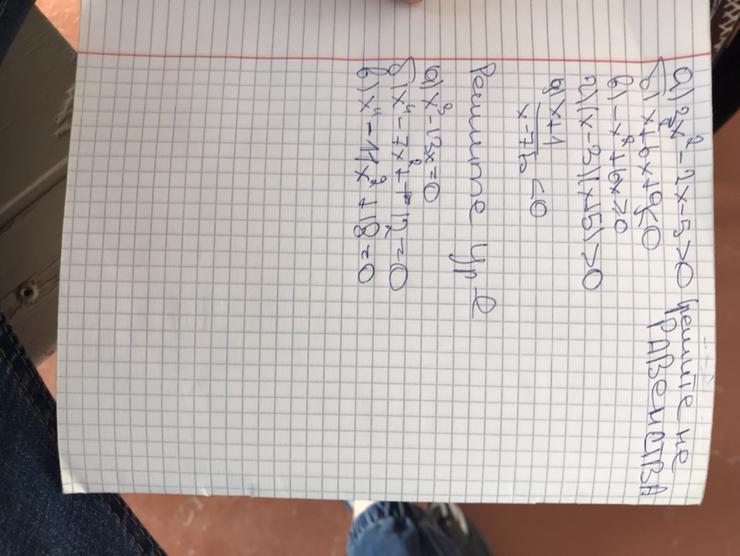 а) 2x² - 2x - 5 > 0 решите не
РАВенСТВА
б) x² + 6x + 9 ≤ 0
в) -x² + 6x ≥ 0
г) (x-3)(x+5) > 0
x+1
x-7,5 < 0
Решите Ур-е
а) x² - 13x = 0
б) x⁴ - 7x² + 12 = 0
в) x⁴ - 11x² + 18 = 0